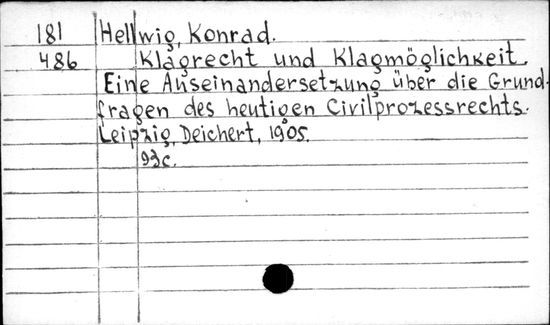 181 Hellwig, Konrad.
486 Klagrecht und Klagmöglichkeit.
Eine Auseinandersetzung über die Grund-
fragen des heutigen Civilprozessrechts.
Leipzig, Deichert, 1905.
93c.